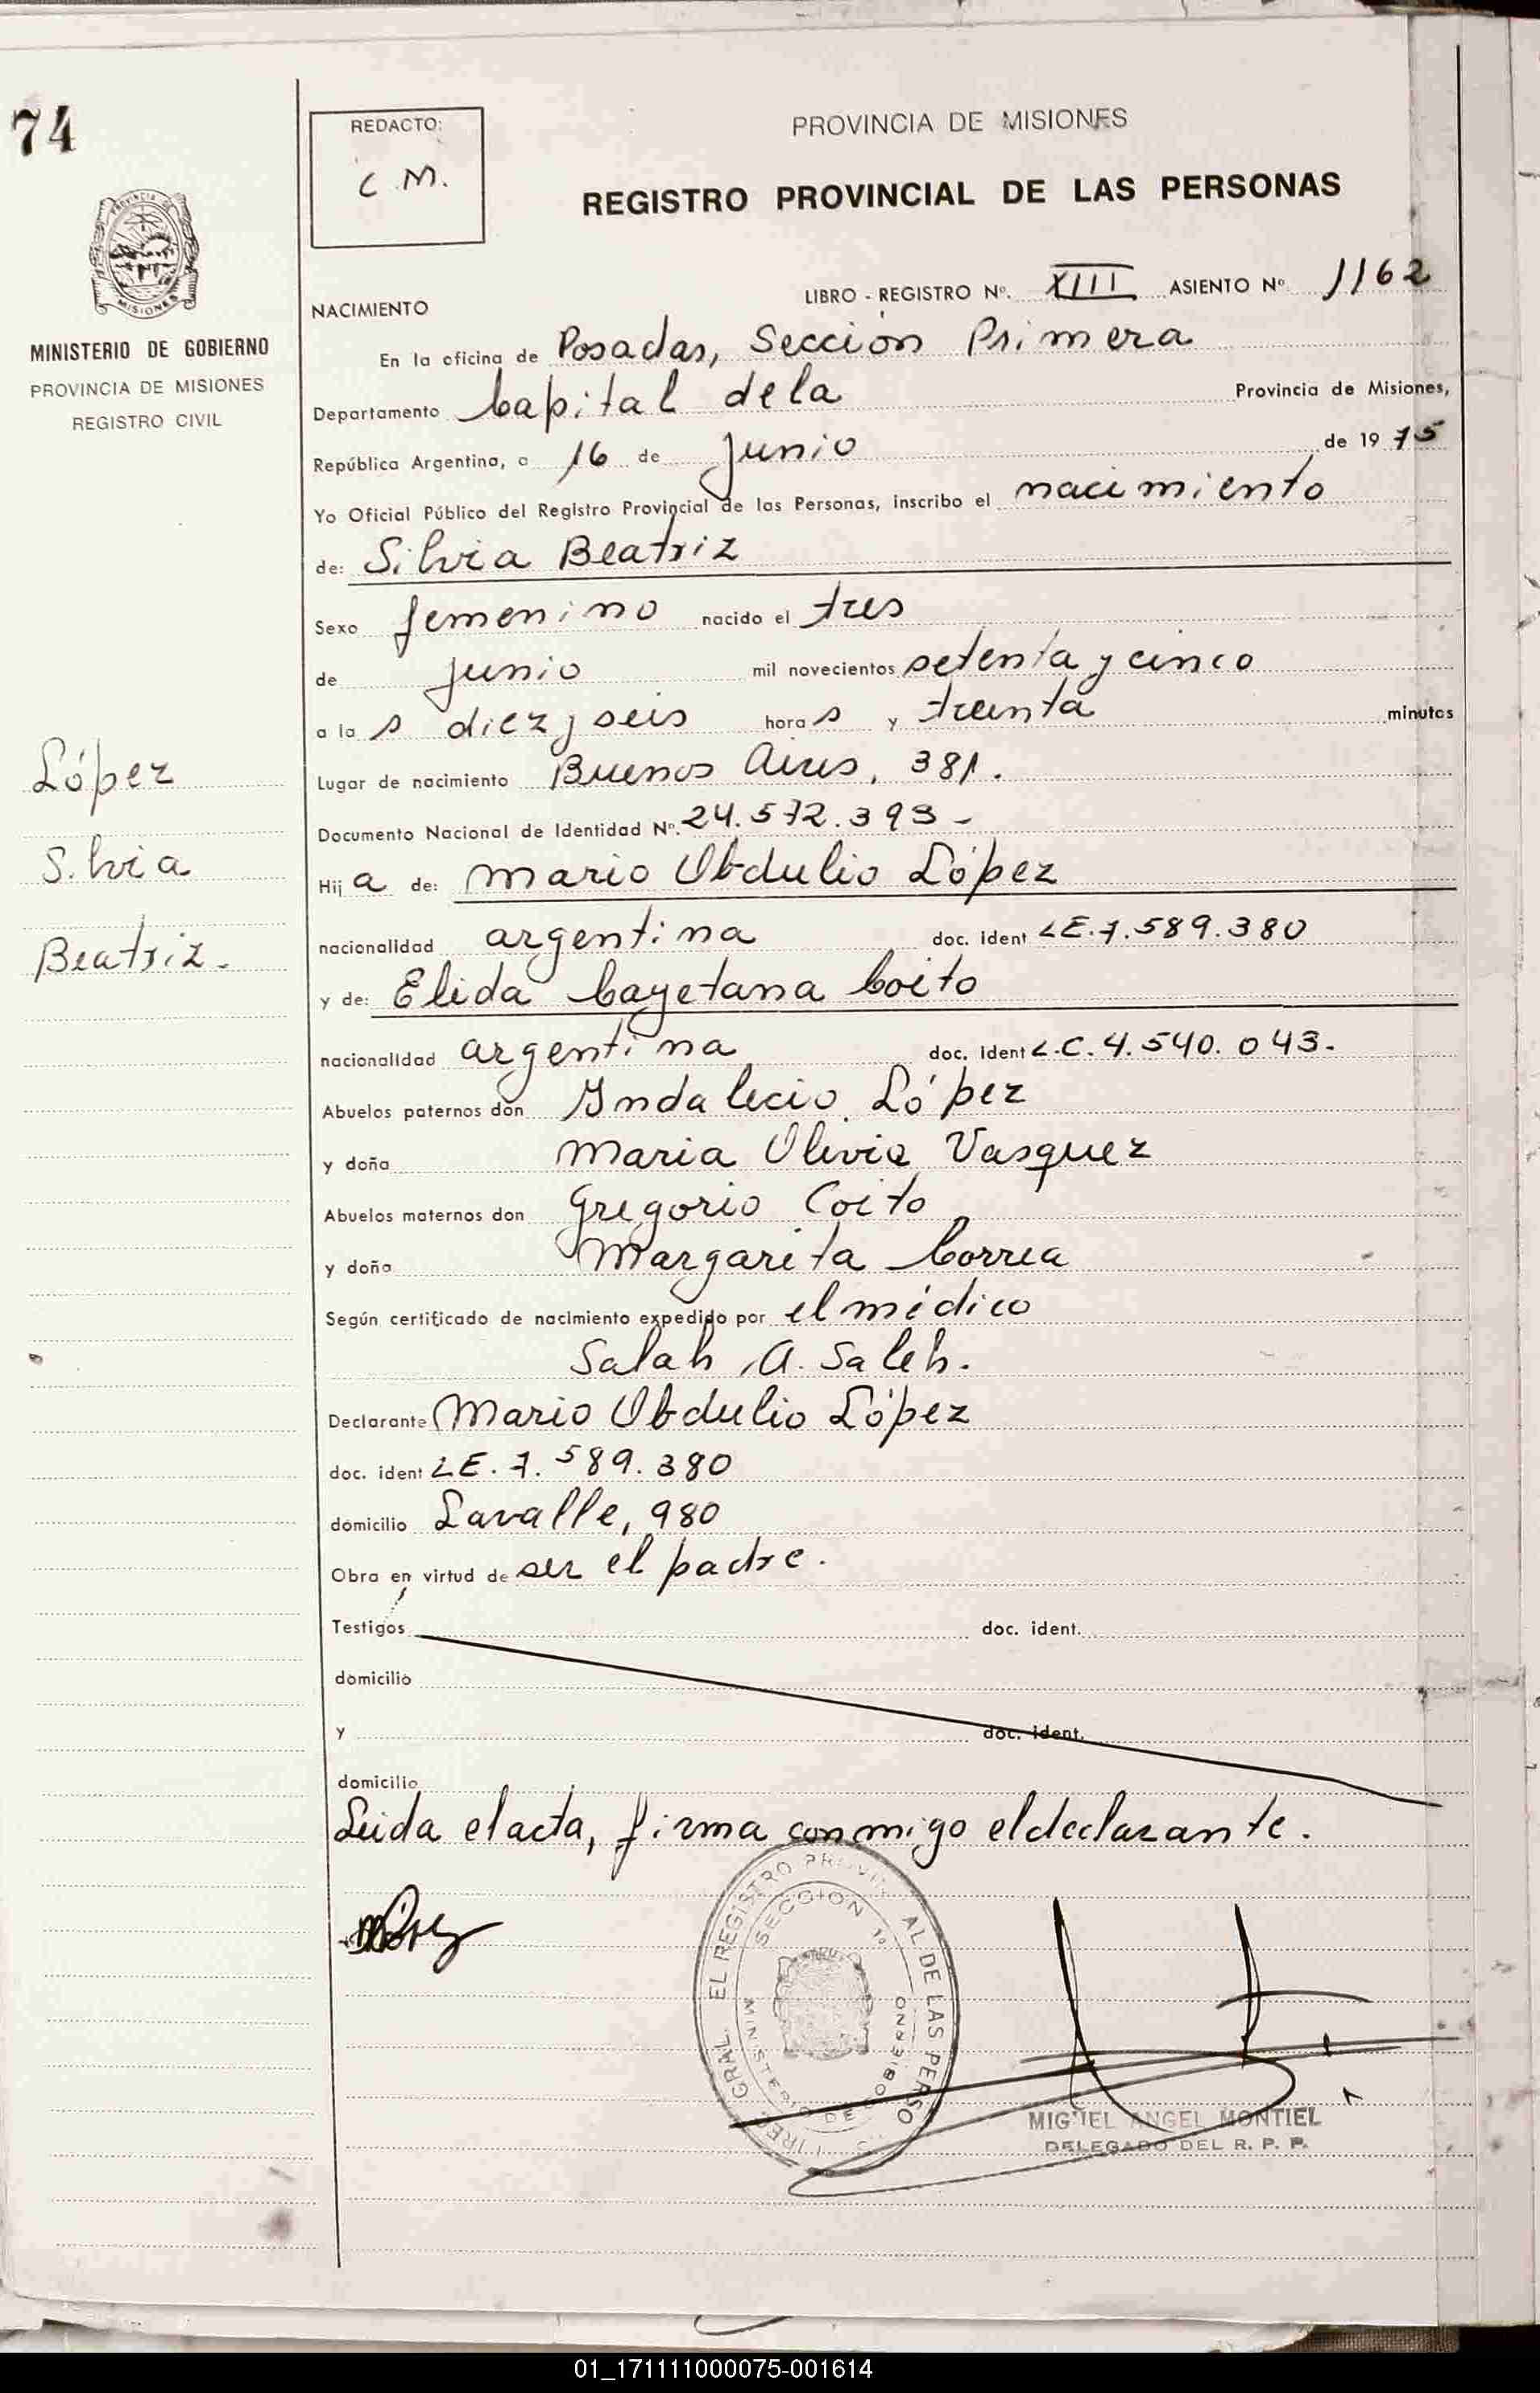 74
REDACTO:
C.M.
PROVINCIA DE MISIONES
REGISTRO PROVINCIAL DE LAS PERSONAS
MINISTERIO DE GOBIERNO
PROVINCIA DE MISIONES
REGISTRO CIVIL
López
Silvia
Beatriz.
LIBRO - REGISTRO Nº. XIII ASIENTO Nº 1162
NACIMIENTO
En la oficina de Posadas, Sección Primera
Departamento Capital de la Provincia de Misiones,
República Argentina, a 16 de Junio de 1975
Yo Oficial Público del Registro Provincial de las Personas, inscribo el nacimiento
de: Silvia Beatriz
Sexo femenino nacido el tres
de junio mil novecientos setenta y cinco
a la s diez y seis hora s y treinta minutos
Lugar de nacimiento Buenos Aires, 381.
Documento Nacional de Identidad Nº. 24.572.393 -
Hij a de: Mario Obdulio López
nacionalidad argentina doc. ident LE.7.589.380
y de: Elida Cayetana Coito
nacionalidad argentina doc. ident L.C.4.540.043.
Abuelos paternos don Indalecio López
y doña Maria Olivia Vasquez
Abuelos maternos don Gregorio Coito
y doña Margarita Correa
Según certificado de nacimiento expedido por el médico
Salah A. Saleh.
Declarante Mario Obdulio López
doc. ident LE.7.589.380
domicilio Lavalle, 980
Obra en virtud de ser el padre.
Testigos doc. ident.
domicilio
y doc. ident.
domicilio
Leida el acta, firma conmigo el declarante.
EL REGISTRO PROVINCIAL DE LAS PERSO
SECCION 1º
MINISTERIO DE GOBIERNO
GRAL.
MIGUEL ANGEL MONTIEL
DELEGADO DEL R. P. P.
01_171111000075-001614